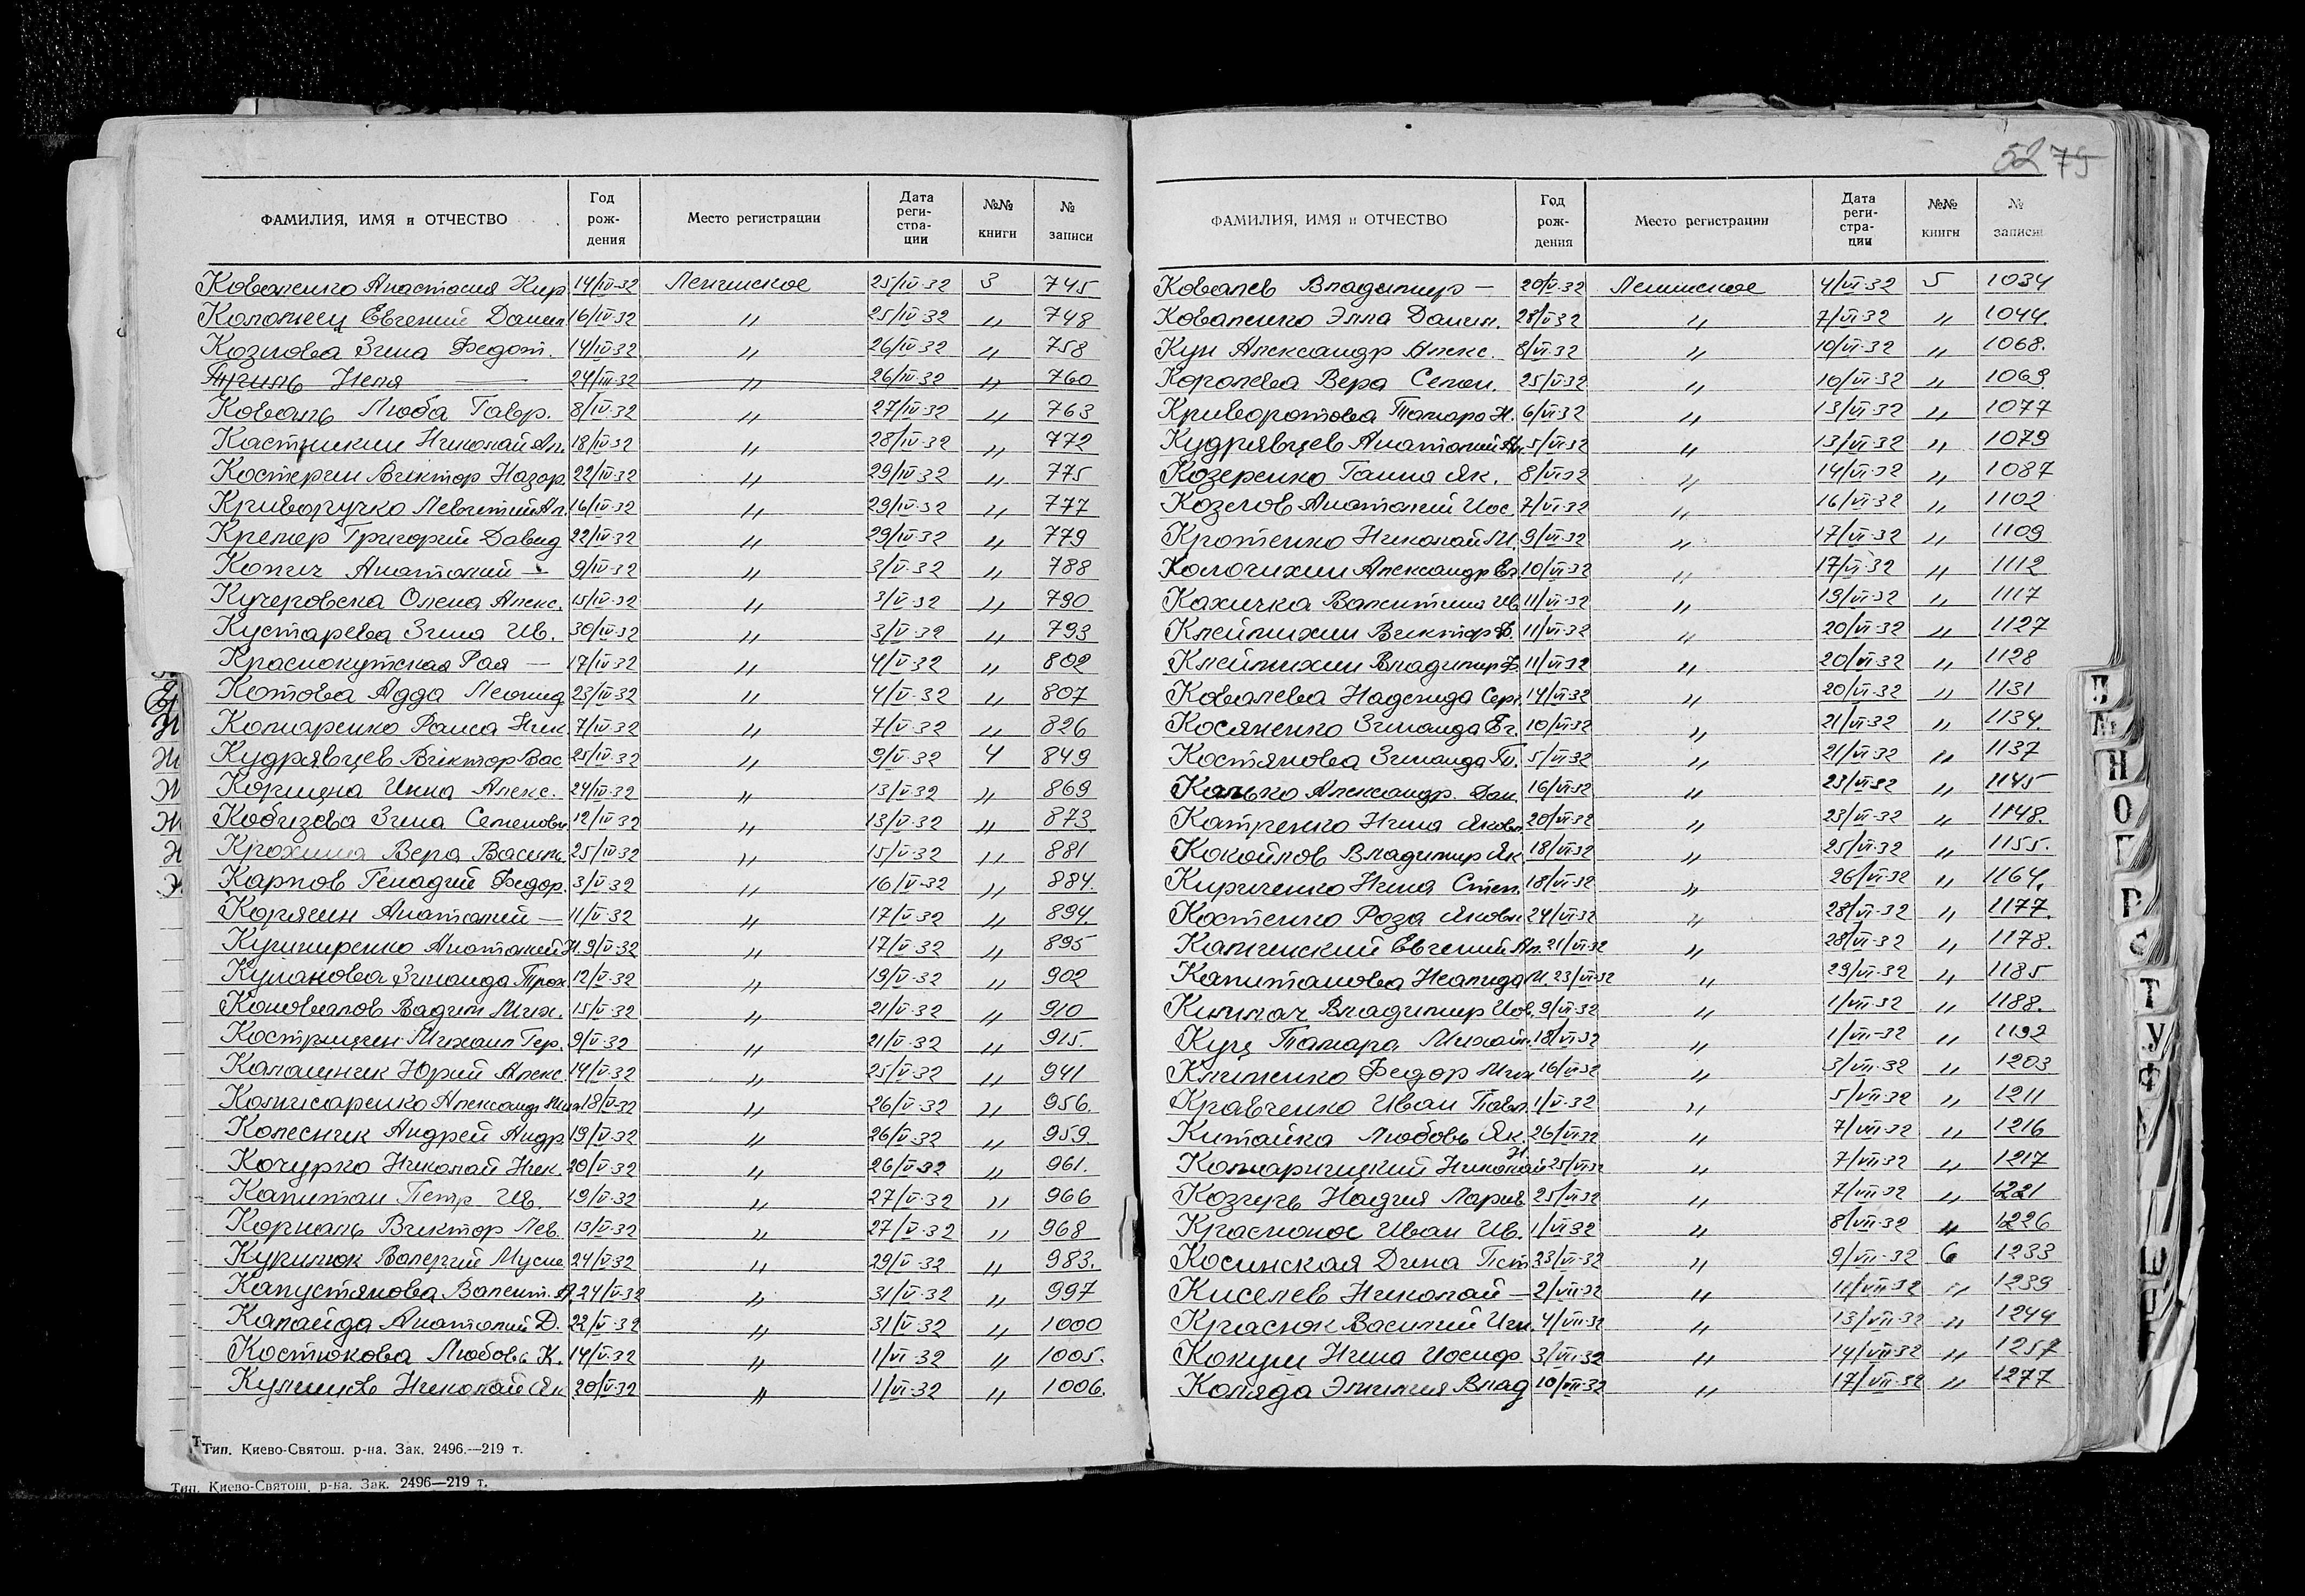 52 75
ФАМИЛИЯ, ИМЯ и ОТЧЕСТВО Год рождения Место регистрации Дата регистрации №№ книги № записи
Коваленко Анастасия Кир 14/IV-32 Ленинское 25/IV-32 3 745
Коломиец Евгений Данил 16/IV-32 〃 25/IV-32 〃 748
Козлова Зина Федот. 14/IV-32 〃 26/IV-32 〃 758
Неля — 24/III-32 〃 26/IV-32 〃 760
Коваль Люба Гавр. 8/IV-32 〃 27/IV-32 〃 763
Касткин Николай Ал. 18/IV-32 〃 28/IV-32 〃 772
Костергин Виктор Назар 22/IV-32 〃 29/IV-32 〃 775
Криворучко Леонтий Ал. 16/IV-32 〃 29/IV-32 〃 777
Кремер Григорий Давид 22/IV-32 〃 29/IV-32 〃 779
Копич Анатолий — 9/IV-32 〃 3/V-32 〃 788
Кучеровска Олена Алекс. 15/IV-32 〃 3/V-32 〃 790
Кустарева Зина Ив. 30/IV-32 〃 3/V-32 〃 793
Краснокутская Рая — 17/IV-32 〃 4/V-32 〃 802
Котова Адда Леонид 23/IV-32 〃 4/V-32 〃 807
Комаренко Раиса Ник 7/IV-32 〃 7/V-32 〃 826
Кудрявцев Виктор Вас 25/IV-32 〃 9/V-32 4 849
Коршена Инна Алекс. 24/IV-32 〃 13/V-32 〃 869
Кобизева Зина Семеновн 12/IV-32 〃 13/V-32 〃 873
Крохина Вера Василь 25/IV-32 〃 15/V-32 〃 881
Карпов Генадий Федор. 3/V-32 〃 16/V-32 〃 884.
Корягин Анатолий — 11/V-32 〃 17/V-32 〃 894.
Кушниренко Анатолий Н. 9/V-32 〃 17/V-32 〃 895
Кулакова Зинаида Трох 12/V-32 〃 19/V-32 〃 902
Коновалов Вадим Мих. 15/V-32 〃 21/V-32 〃 910
Кострицин Михаил Гер. 9/V-32 〃 21/V-32 〃 915.
Калашник Юрий Алекс. 14/V-32 〃 25/V-32 〃 941
Комисаренко Александр Мих 18/V-32 〃 26/V-32 〃 956.
Колесник Андрей Андр 19/V-32 〃 26/V-32 〃 959.
Кочурко Николай Ник. 20/V-32 〃 26/V-32 〃 961.
Капитан Петр Ив. 19/V-32 〃 27/V-32 〃 966
Корналь Виктор Лев. 13/V-32 〃 27/V-32 〃 968
Курилюк Валерий Мусие 24/V-32 〃 29/V-32 〃 983.
Капустянова Валент. А. 24/V-32 〃 31/V-32 〃 997
Капайда Анатолий Д. 22/V-32 〃 31/V-32 〃 1000
Костюкова Любовь К. 14/V-32 〃 1/VI-32 〃 1005.
Купшов Николай Як 20/V-32 〃 1/VI-32 〃 1006.
Тип. Киево-Святош. р-на. Зак. 2496.—219 т.
Тип. Киево-Святош. р-на. Зак. 2496—219 т.
ФАМИЛИЯ, ИМЯ и ОТЧЕСТВО Год рождения Место регистрации Дата регистрации №№ книги № записи
Ковалев Владимир — 20/V-32 Ленинское 4/VI-32 5 1034
Коваленко Элла Данил. 28/V-32 〃 7/VI-32 〃 1044.
Кун Александр Алекс. 8/VI-32 〃 10/VI-32 〃 1068.
Королева Вера Семен. 25/V-32 〃 10/VI-32 〃 1069.
Криворотова Тамара Н. 6/VI-32 〃 13/VI-32 〃 1077
Кудрявцев Анатолий Ал. 5/VI-32 〃 13/VI-32 〃 1079
Козеренко Ганна Як. 8/VI-32 〃 14/VI-32 〃 1087
Козлов Анатолий Иос. 7/VI-32 〃 16/VI-32 〃 1102
Кротенко Николай М. 9/VI-32 〃 17/VI-32 〃 1109
Кологихин Александр Ев. 10/VI-32 〃 17/VI-32 〃 1112
Кахичка Валентина Ив 11/VI-32 〃 19/VI-32 〃 1117
Клеймихин Виктор Ф. 11/VI-32 〃 20/VI-32 〃 1127
Клеймихин Владимир Ф. 11/VI-32 〃 20/VI-32 〃 1128
Ковалева Надежда Серг. 14/VI-32 〃 20/VI-32 〃 1131
Косяненко Зинаида Ег. 10/VI-32 〃 21/VI-32 〃 1134.
Костянова Зинаида П. 5/VI-32 〃 21/VI-32 〃 1137
Калько Александр. Дан. 16/VI-32 〃 23/VI-32 〃 1145
Катренко Нина Яковл 20/VI-32 〃 23/VI-32 〃 1148.
Кокойлов Владимир Як 18/VI-32 〃 25/VI-32 〃 1155.
Кириченко Нина Степ. 18/VI-32 〃 26/VI-32 〃 1164.
Костенко Роза Яковл 24/VI-32 〃 28/VI-32 〃 1177.
Калинский Евгений Ал. 21/VI-32 〃 28/VI-32 〃 1178.
Капитанова Неанида И. 23/VI-32 〃 29/VI-32 〃 1185
Килач Владимир Иов. 9/VI-32 〃 1/VII-32 〃 1188.
Куц Тамара Михайл. 18/VI-32 〃 1/VII-32 〃 1192
Клименко Федор Мих 16/VI-32 〃 3/VII-32 〃 1203
Кравченко Иван Павл. 1/V-32 〃 5/VII-32 〃 1211
Китайка Любовь Як. 26/VI-32 〃 7/VII-32 〃 1216
Комарницкий Николай Н. 25/VI-32 〃 7/VII-32 〃 1217
Козчурь Надия Ларив 25/VI-32 〃 7/VII-32 〃 1221
Краснонос Иван Ив. 1/VI-32 〃 8/VII-32 〃 1226
Косинская Дина Пет 23/VI-32 〃 9/VII-32 6 1233
Киселев Николай — 2/VII-32 〃 11/VII-32 〃 1239
Краснюк Василий Игн. 4/VII-32 〃 13/VII-32 〃 1244
Кокуш Нина Иосиф 3/VII-32 〃 14/VII-32 〃 1257
Коляда Эмилия Влад 10/VII-32 〃 17/VII-32 〃 1277
Л
М
Н
О
П
Р
С
Т
У
Ф
Ш